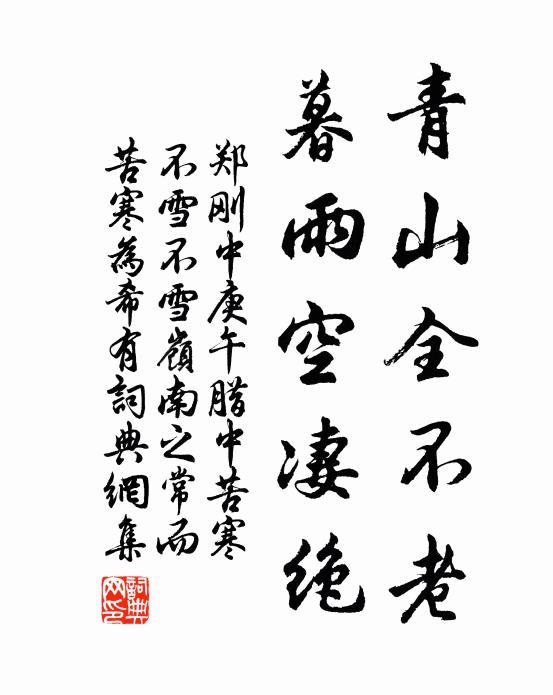 青山全不老
暮雨空凄絶
郑刚中庚午腊中苦寒
不雪不雪嶺南之常而
苦寒為希有詞典網集
詞典
网印